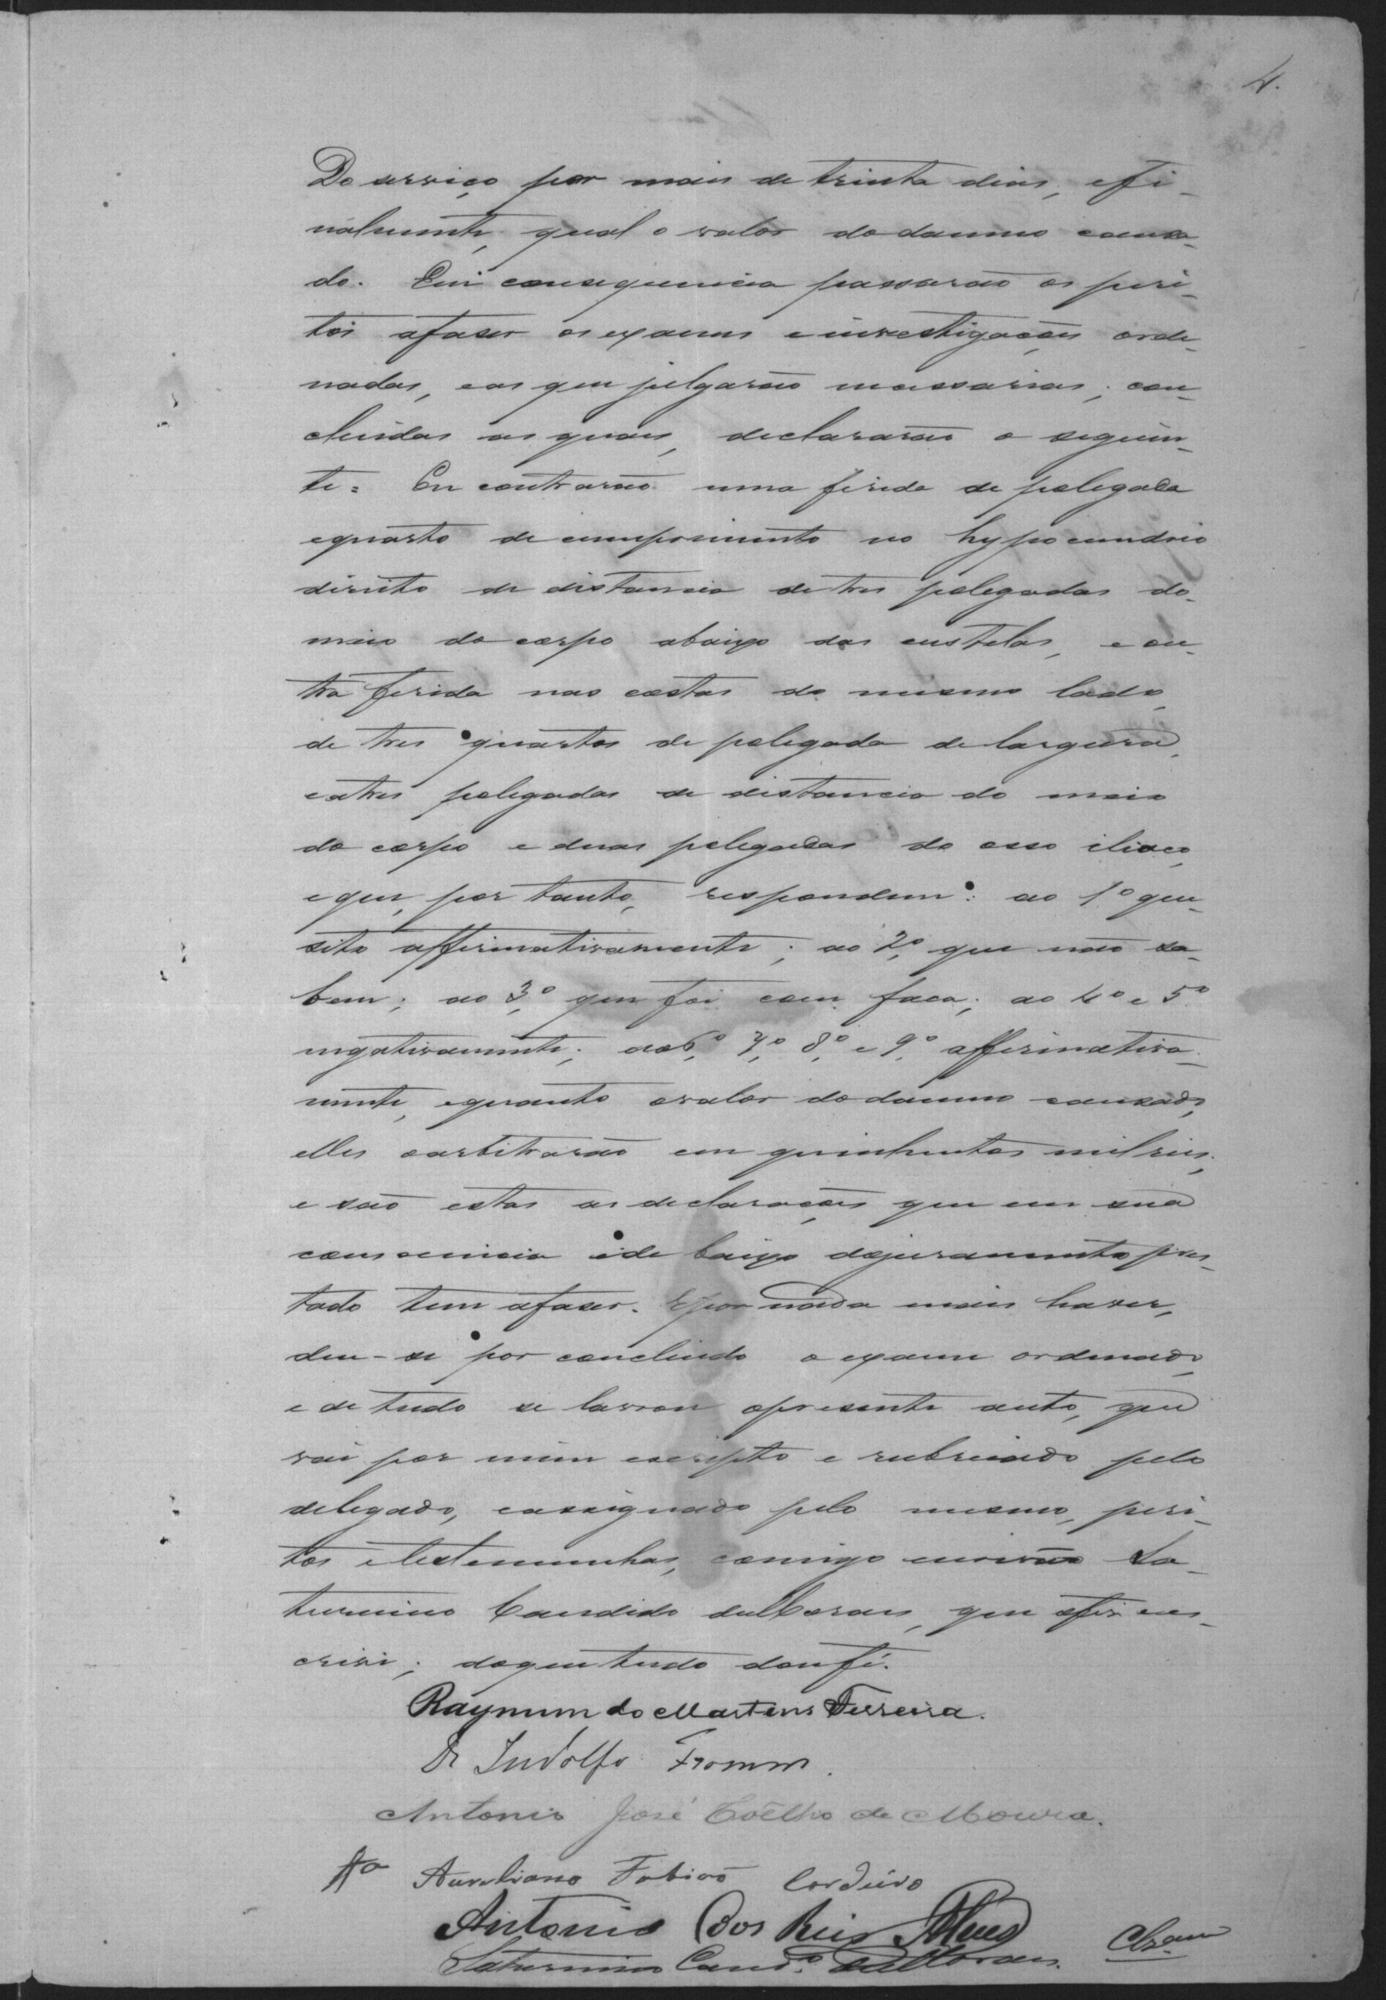 4.
Do serviço por mais de trinta dias, efi-
nalmente, qual o valor do damno causa-
do. Em consequencia passarão os peri-
tos afaser os exames e investigações orde-
nadas, e as que julgarão necessarias; con-
cluidas as quaes, declararão o seguin-
te: Encontrarão uma ferida de polegada
equarto de comprimento no hypocundrio
direito de distancia de tres polegadas do
meio do corpo abaixo das custelas, e ou-
tra ferida nas costas do mesmo lado,
de tres quartos de polegada de largura,
e a tres polegadas de distancia do meio
do corpo e duas polegadas do osso iliaco,
e que, por tanto, respondem: ao 1º que-
sito affirmativamente; ao 2º, que não sa-
bem; ao 3º, que foi com faca; ao 4º e 5º
negativamente; aos 6º, 7º, 8º, e 9º, affirmativa-
mente, equanto o valor do damno causado,
elles arbitrarão em quinhentos mil reis;
e são estas as declarações que em sua
consciencia e de baixo dojuramento pres-
tado tem afaser. E por nada mais haver,
deu-se por concluido o exame ordenado,
e de tudo se lavrou opresente auto, que
vai por mim escripto e rubricado pelo
delegado, e assignado pelo mesmo, peri-
tos e testemunhas, comigo escrivão Sa-
turnino Candido de Moraes, que o fiz e es-
crivi; doque tudo dou fé.
Raymundo Martins Ferreira.
Dr Indolfo Fromm.
Antonio José Coêlho de Moura.
Aureliano Fabião Cordeiro
Antonio Dos Reis Alves
Saturnino Candº de Moraes.